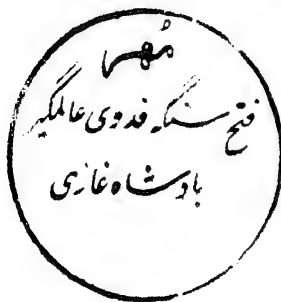 مُهر
فتح سنگه فدوی عالمگیر
بادشاه غازی